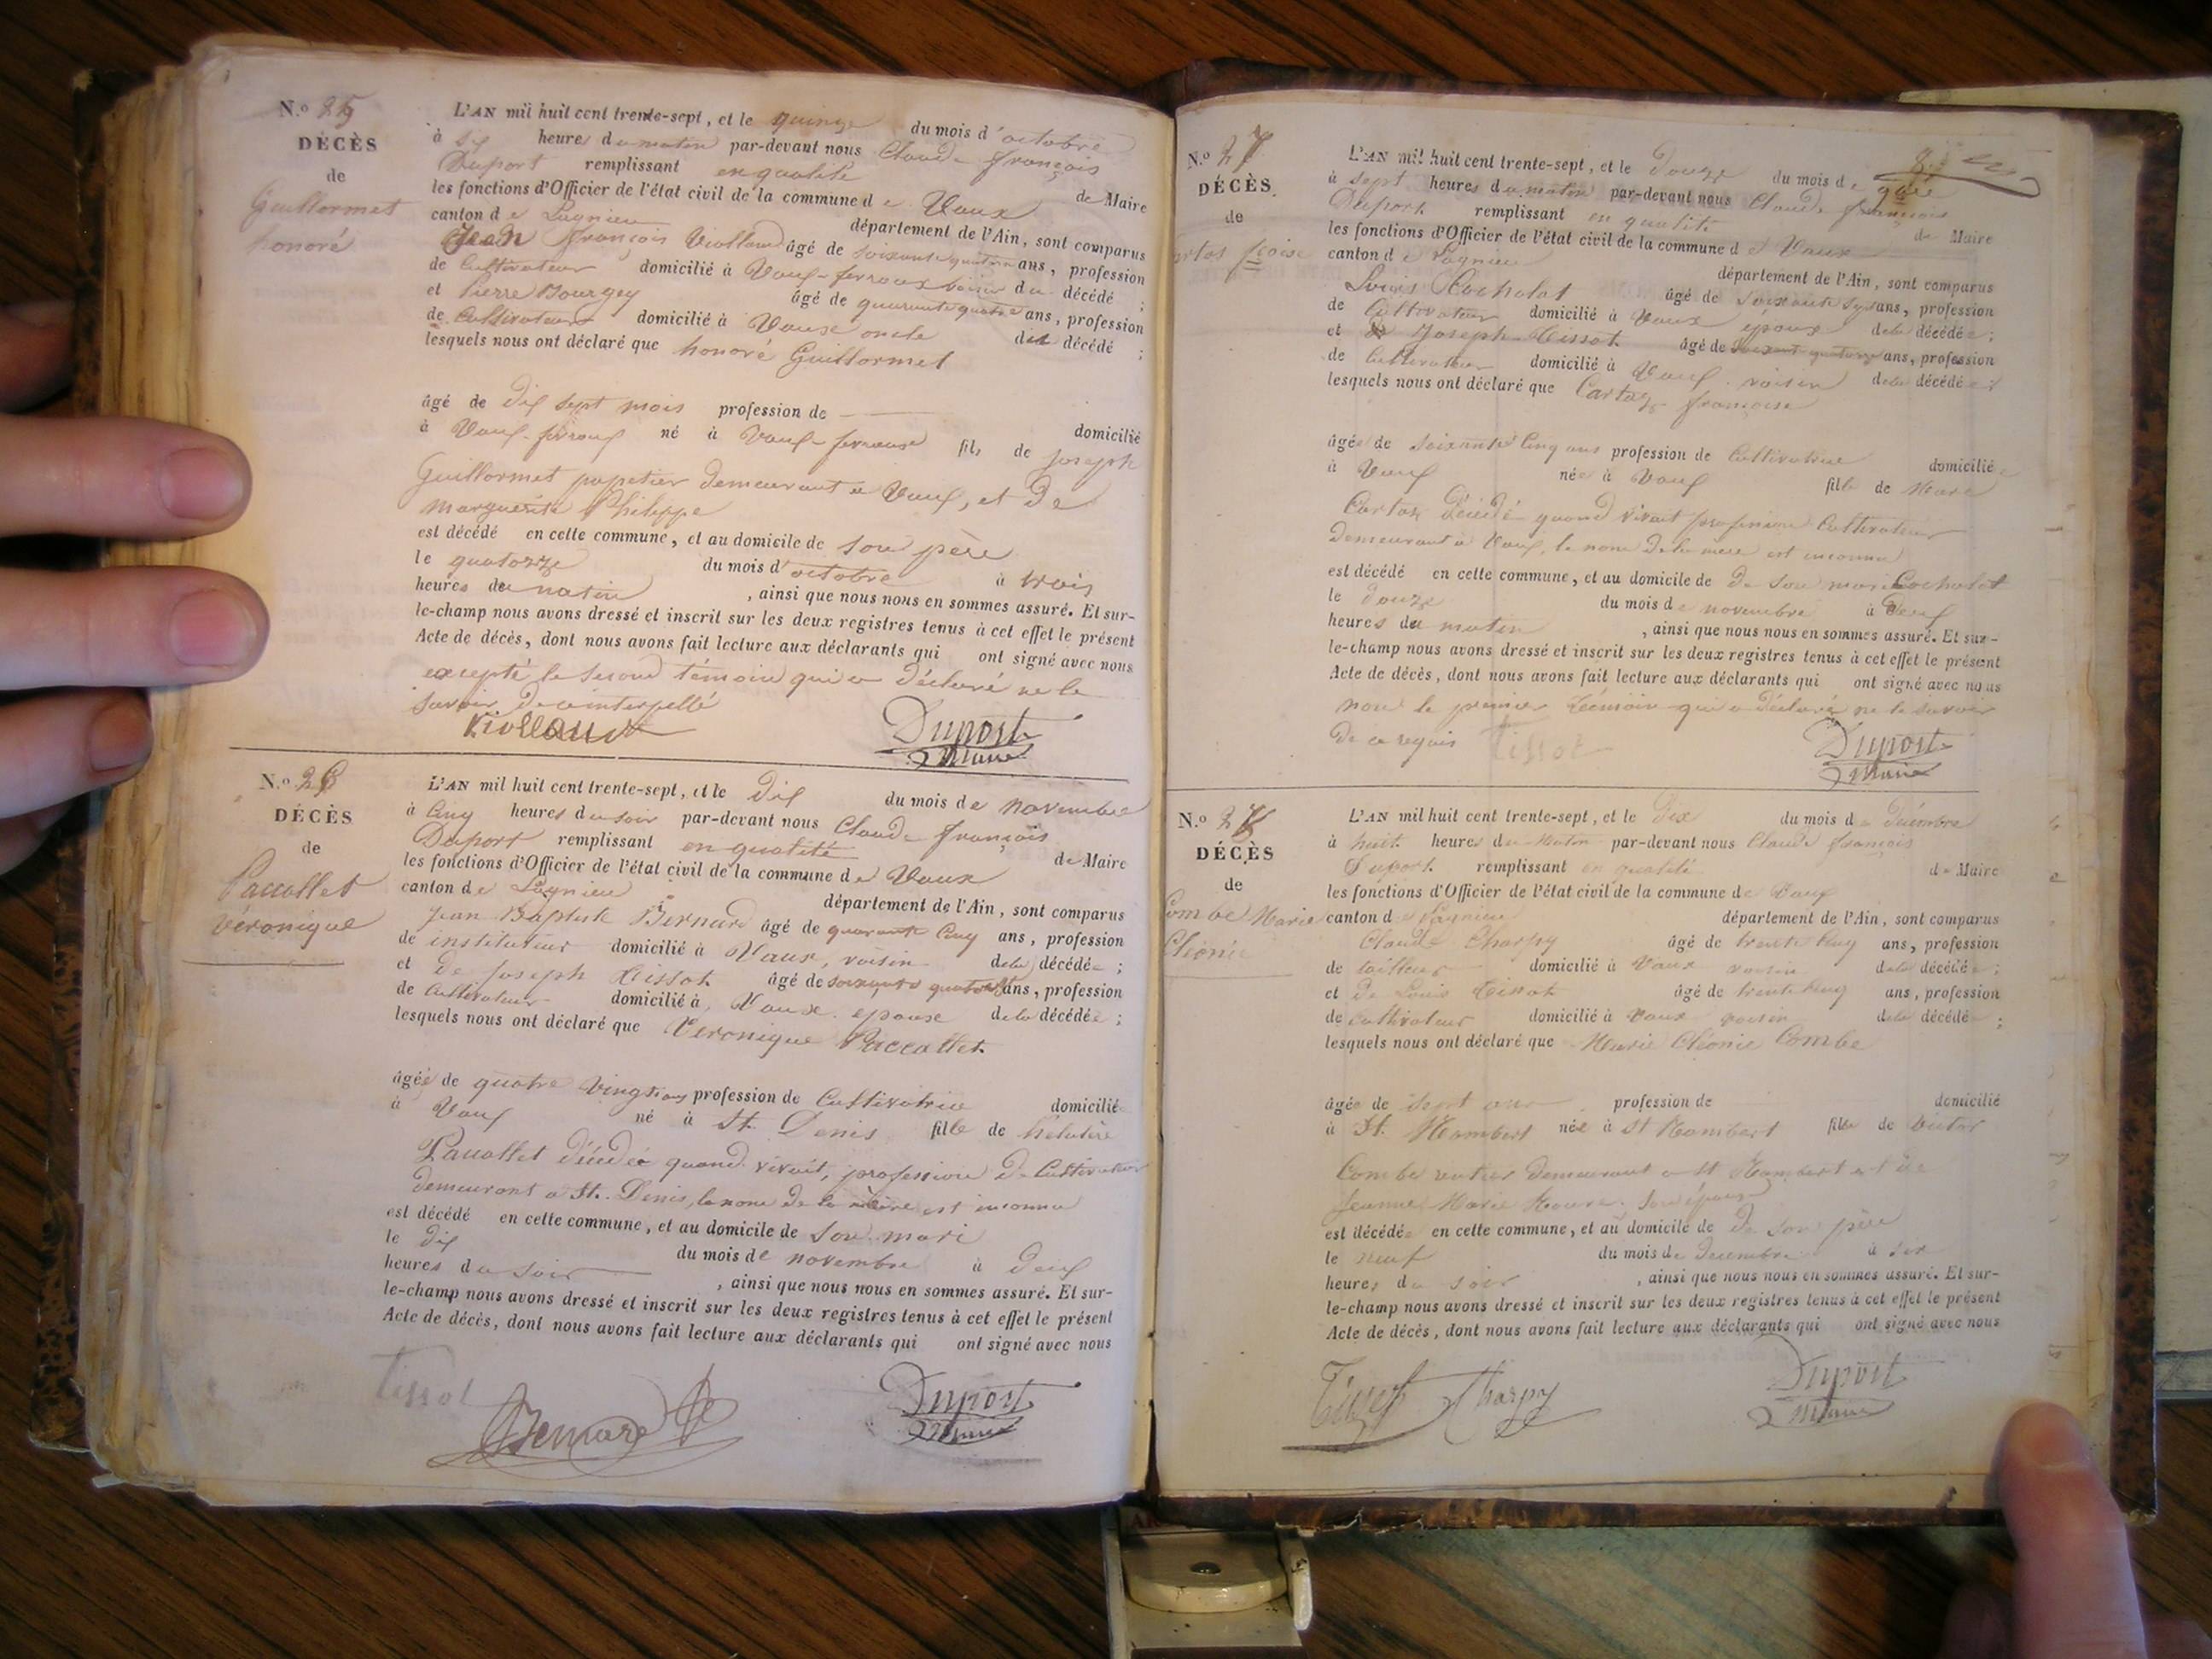 N.º 25
DÉCÈS
de
Guillermet
honoré
L'AN mil huit cent trente-sept, et le quinze du mois d'octobre
à six heures du matin par-devant nous Claude françois
Duport remplissant en qualité de Maire
les fonctions d'Officier de l'état civil de la commune de Vaux
canton de Lagnieu département de l'Ain, sont comparus
Jean françois Viollaud âgé de soixante quatre ans, profession
de Cultivateur domicilié à Vaux-ferroux voisin du décédé ;
et Pierre Bourgey âgé de quarante quatre ans, profession
de Cultivateur domicilié à Vaux oncle du décédé ;
lesquels nous ont déclaré que honoré Guillermet
âgé de dix sept mois profession de domicilié
à Vaux-ferroux né à Vaux-ferroux fils de joseph
Guillermet papetier demeurant à Vaux, et de
marguerite Philippe
est décédé en cette commune, et au domicile de son père
le quatorze du mois d'octobre à trois
heures du matin, ainsi que nous nous en sommes assuré. Et sur-
le-champ nous avons dressé et inscrit sur les deux registres tenus à cet effet le présent
Acte de décès, dont nous avons fait lecture aux déclarants qui ont signé avec nous
excepté le second témoin qui a déclaré ne le
savoir de ce interpellé
Viollaud Duport
Maire
N.º 26
DÉCÈS
de
Paccallet
Véronique
L'AN mil huit cent trente-sept, et le dix du mois de novembre
à Cinq heures du soir par-devant nous Claude françois
Duport remplissant en qualité de Maire
les fonctions d'Officier de l'état civil de la commune de Vaux
canton de Lagnieu département de l'Ain, sont comparus
Jean Baptiste Bernard âgé de quarante Cinq ans, profession
de instituteur domicilié à Vaux, voisin de la décédée ;
et de Joseph Tissot âgé de soixante quatorze ans, profession
de Cultivateur domicilié à Vaux. epoux de la décédée ;
lesquels nous ont déclaré que Véronique Paccallet
âgée de quatre vingts ans profession de Cultivatrice domicilié
à Vaux né à St. Denis fille de
Paccallet décédé quand vivait, profession de Cultivateur
demeurant a St. Denis, le nom de la mère est inconnu
est décédé en cette commune, et au domicile de son mari
le dix du mois de novembre à deux
heures du soir, ainsi que nous nous en sommes assuré. Et sur-
le-champ nous avons dressé et inscrit sur les deux registres tenus à cet effet le présent
Acte de décès, dont nous avons fait lecture aux déclarants qui ont signé avec nous
Tissot Bernard Duport
Maire
N.º 27
DÉCÈS
de
L'AN mil huit cent trente-sept, et le douze du mois de
à sept heures du matin par-devant nous Claude françois
Duport remplissant en qualité de Maire
les fonctions d'Officier de l'état civil de la commune de Vaux
canton de Lagnieu département de l'Ain, sont comparus
Louis Cochalat âgé de soixante ans, profession
de Cultivateur domicilié à Vaux époux de la décédée ;
et Joseph Tissot âgé de soixante quatorze ans, profession
de Cultivateur domicilié à Vaux voisin de la décédée ;
lesquels nous ont déclaré que Cartaz françoise
âgée de soixante Cinq ans profession de Cultivatrice domicilié
à Vaux née à Vaux fille de Marc
Cartaz décédé quand vivait profession Cultivateur
demeurant à Vaux, le nom de la mere est inconnu
est décédé en cette commune, et au domicile de de son mari Cochalat
le douze du mois de novembre à deux
heures du matin, ainsi que nous nous en sommes assuré. Et sur-
le-champ nous avons dressé et inscrit sur les deux registres tenus à cet effet le présent
Acte de décès, dont nous avons fait lecture aux déclarants qui ont signé avec nous
non le premier témoin qui a déclaré ne le savoir
de ce requis Tissot Duport
Maire
N.º 28
DÉCÈS
de
Combe Marie
Cléonie
L'AN mil huit cent trente-sept, et le dix du mois de décembre
à huit heures du matin par-devant nous Claude françois
Duport remplissant en qualité de Maire
les fonctions d'Officier de l'état civil de la commune de Vaux
canton de Lagnieu département de l'Ain, sont comparus
Claude Charpy âgé de trente Cinq ans, profession
de tailleur domicilié à Vaux voisin de la décédée ;
et de Louis Tissot âgé de trente Cinq ans, profession
de cultivateur domicilié à Vaux voisin de la décédée ;
lesquels nous ont déclaré que Marie Cléonie Combe
âgée de sept ans profession de domicilié
à St. Rambert née à St Rambert fille de Victor
Combe rentier demeurant a St Rambert et de
Jeanne Marie son épouse
est décédée en cette commune, et au domicile de de son père
le neuf du mois de Décembre à six
heures du soir, ainsi que nous nous en sommes assuré. Et sur-
le-champ nous avons dressé et inscrit sur les deux registres tenus à cet effet le présent
Acte de décès, dont nous avons fait lecture aux déclarants qui ont signé avec nous
Tissot Charpy Duport
Maire